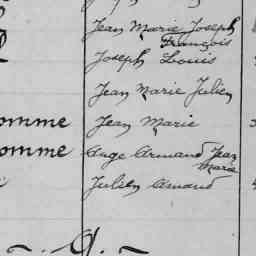 Jean Marie Joseph
François
Joseph Louis
Jean Marie Julien
omme Jean Marie
omme Ange Armand Jean
Marie
Julien Armand